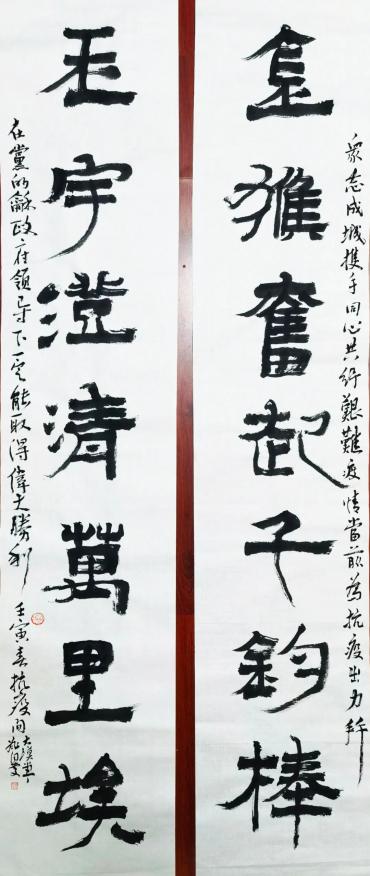 衆志成城攜手同心共紓艱難疫情當前為抗疫出力
金猴奮起千鈞棒
玉宇澄清萬里埃
在黨的龢政府領导下一定能取得偉大勝利 壬寅春抗疫间